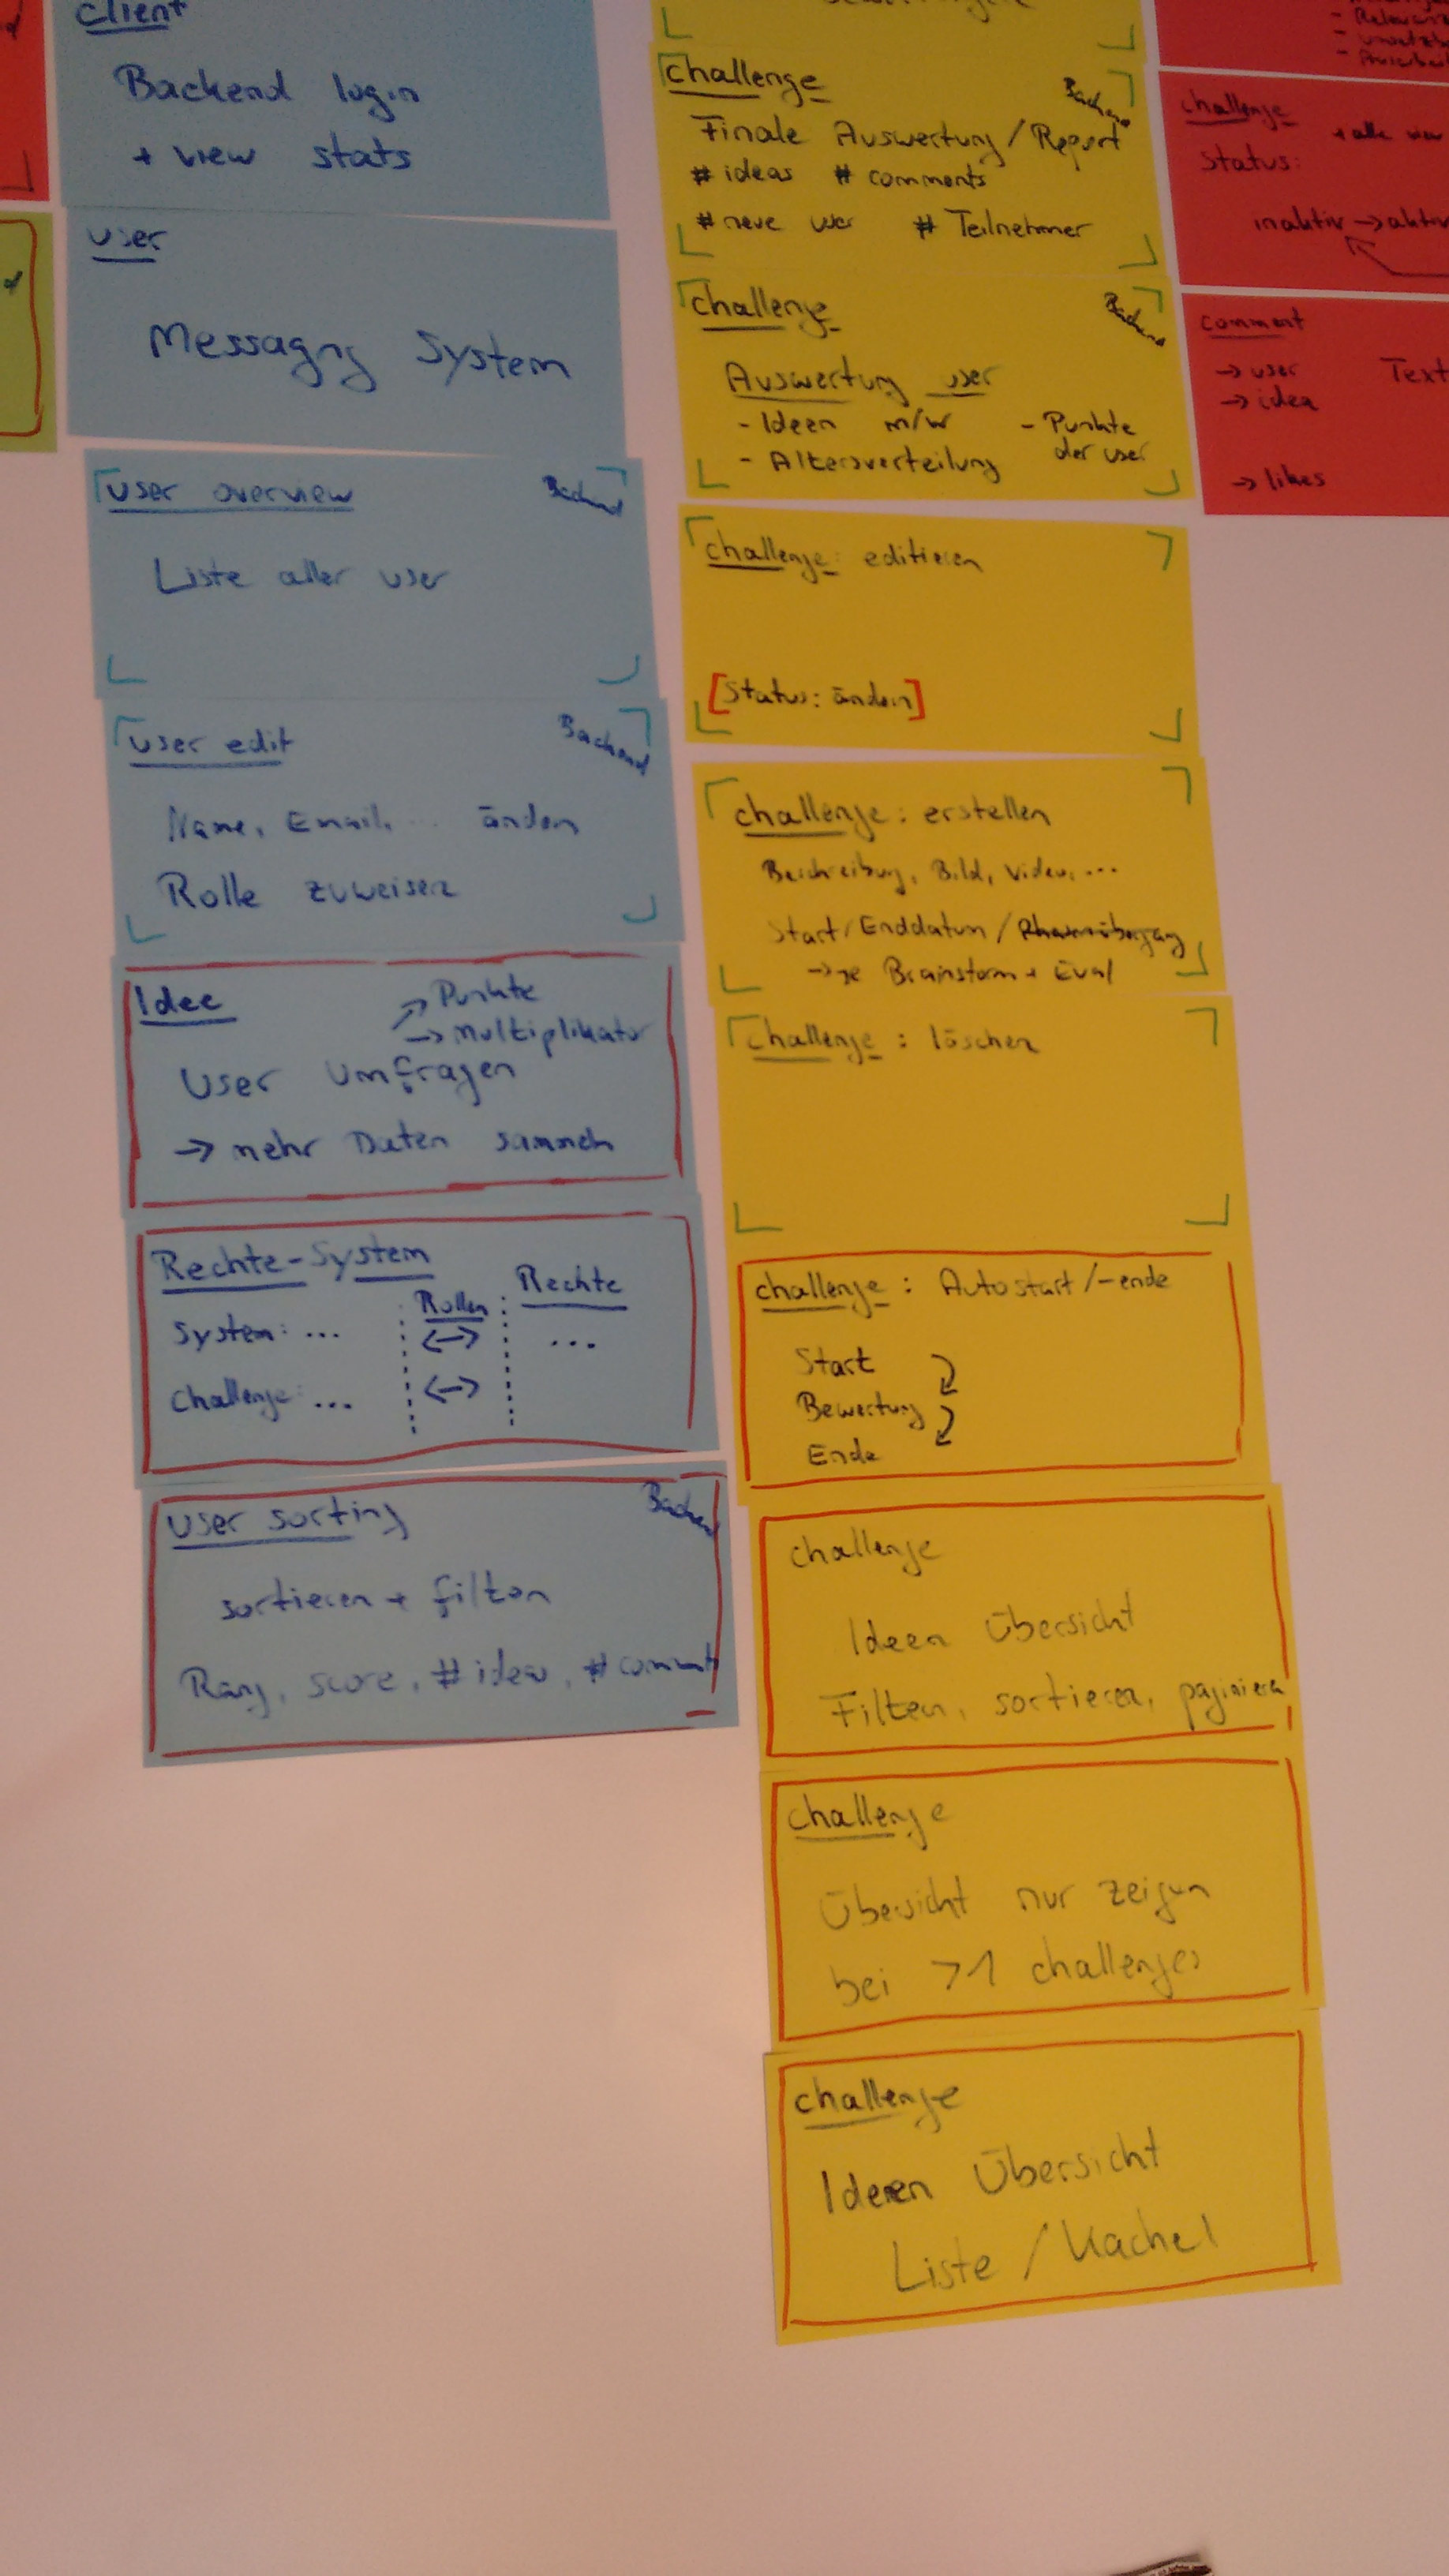 Client
Backend login
+ view stats
user
Messaging System
user overview
Backend
Liste aller user
user edit
Backend
Name, Email, ... ändern
Rolle zuweisen
Idee
→ Punkte
→ Multiplikator
User Umfragen
→ mehr Daten sammeln
Rechte-System
Rollen
Rechte
System: ...
↔
...
Challenge: ...
↔
User sorting
Backend
sortieren + filtern
Rang, score, # ideen, # comments
challenge
Backend
Finale Auswertung / Report
# ideas # comments
# neue user # Teilnehmer
challenge
Backend
Auswertung user
- Ideen m/w
- Altersverteilung
- Punkte
der user
challenge: editieren
[Status: ändern]
challenge: erstellen
Beschreibung, Bild, Video, ...
Start/Enddatum / Phasenübergang
→ je Brainstorm + Eval
challenge: löschen
challenge: Autostart/-ende
Start
Bewertung
Ende
challenge
Ideen Übersicht
Filtern, sortieren, paginieren
challenge
Übersicht nur zeigen
bei >1 challenges
challenge
Ideen Übersicht
Liste / Kachel
- Relevanz
challenge
+ alle
Status:
inaktiv → aktiv
comment
→ user
→ idea
Text
→ likes